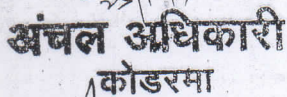 अंचल अधिकारी
कोडरमा